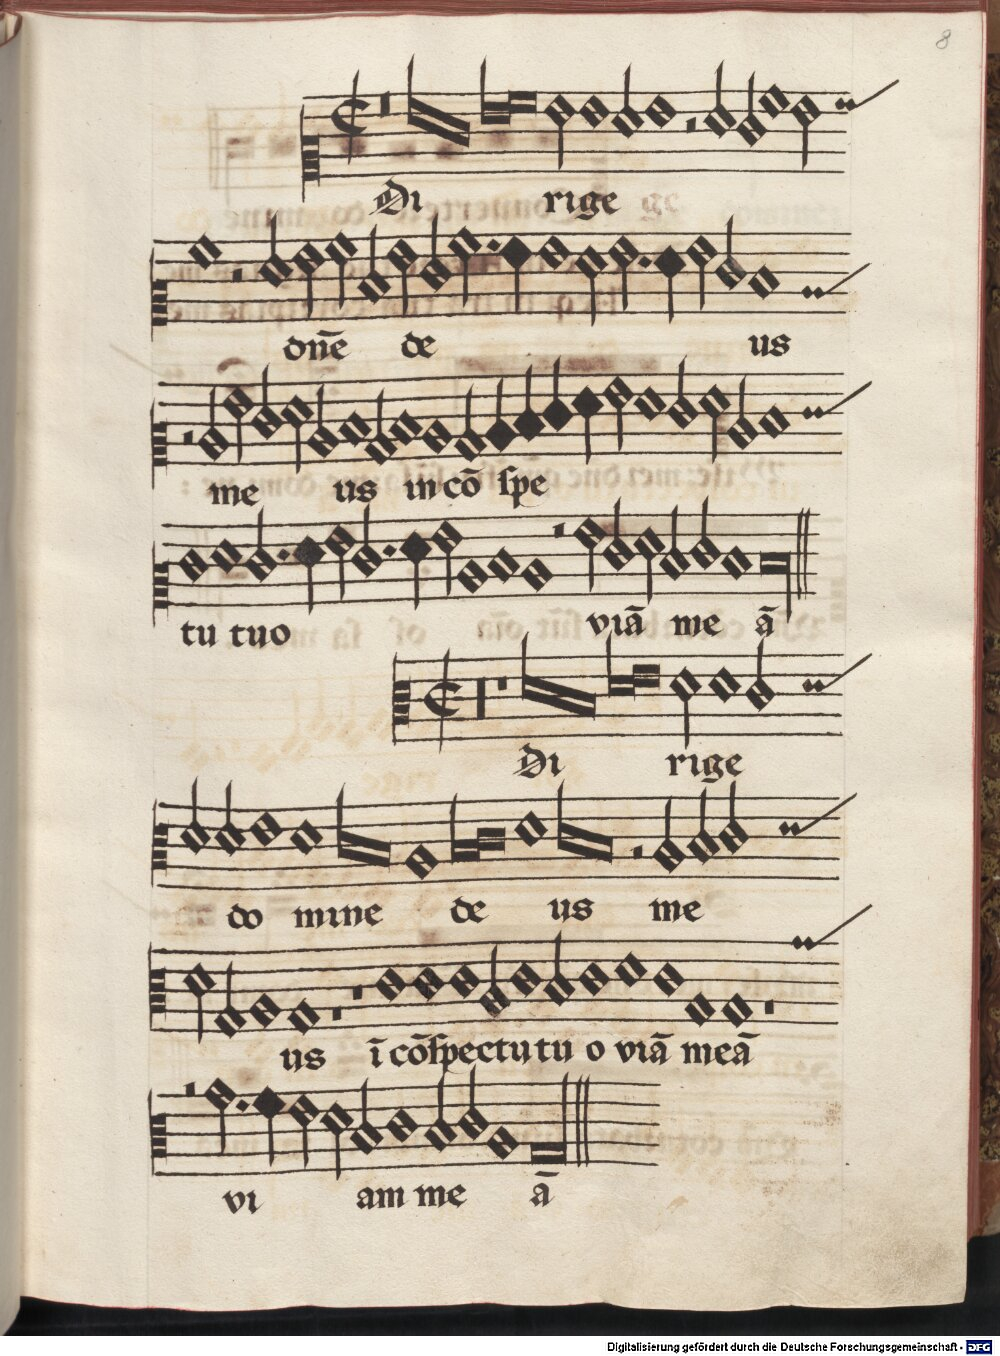 8
Di rige
dn̄e de us
me us in cō spe
tu tuo viā me ā
Di rige
do mine de us me
us ī cōspectu tu o viā meā
vi am me ā
Digitalisierung gefördert durch die Deutsche Forschungsgemeinschaft - DFG